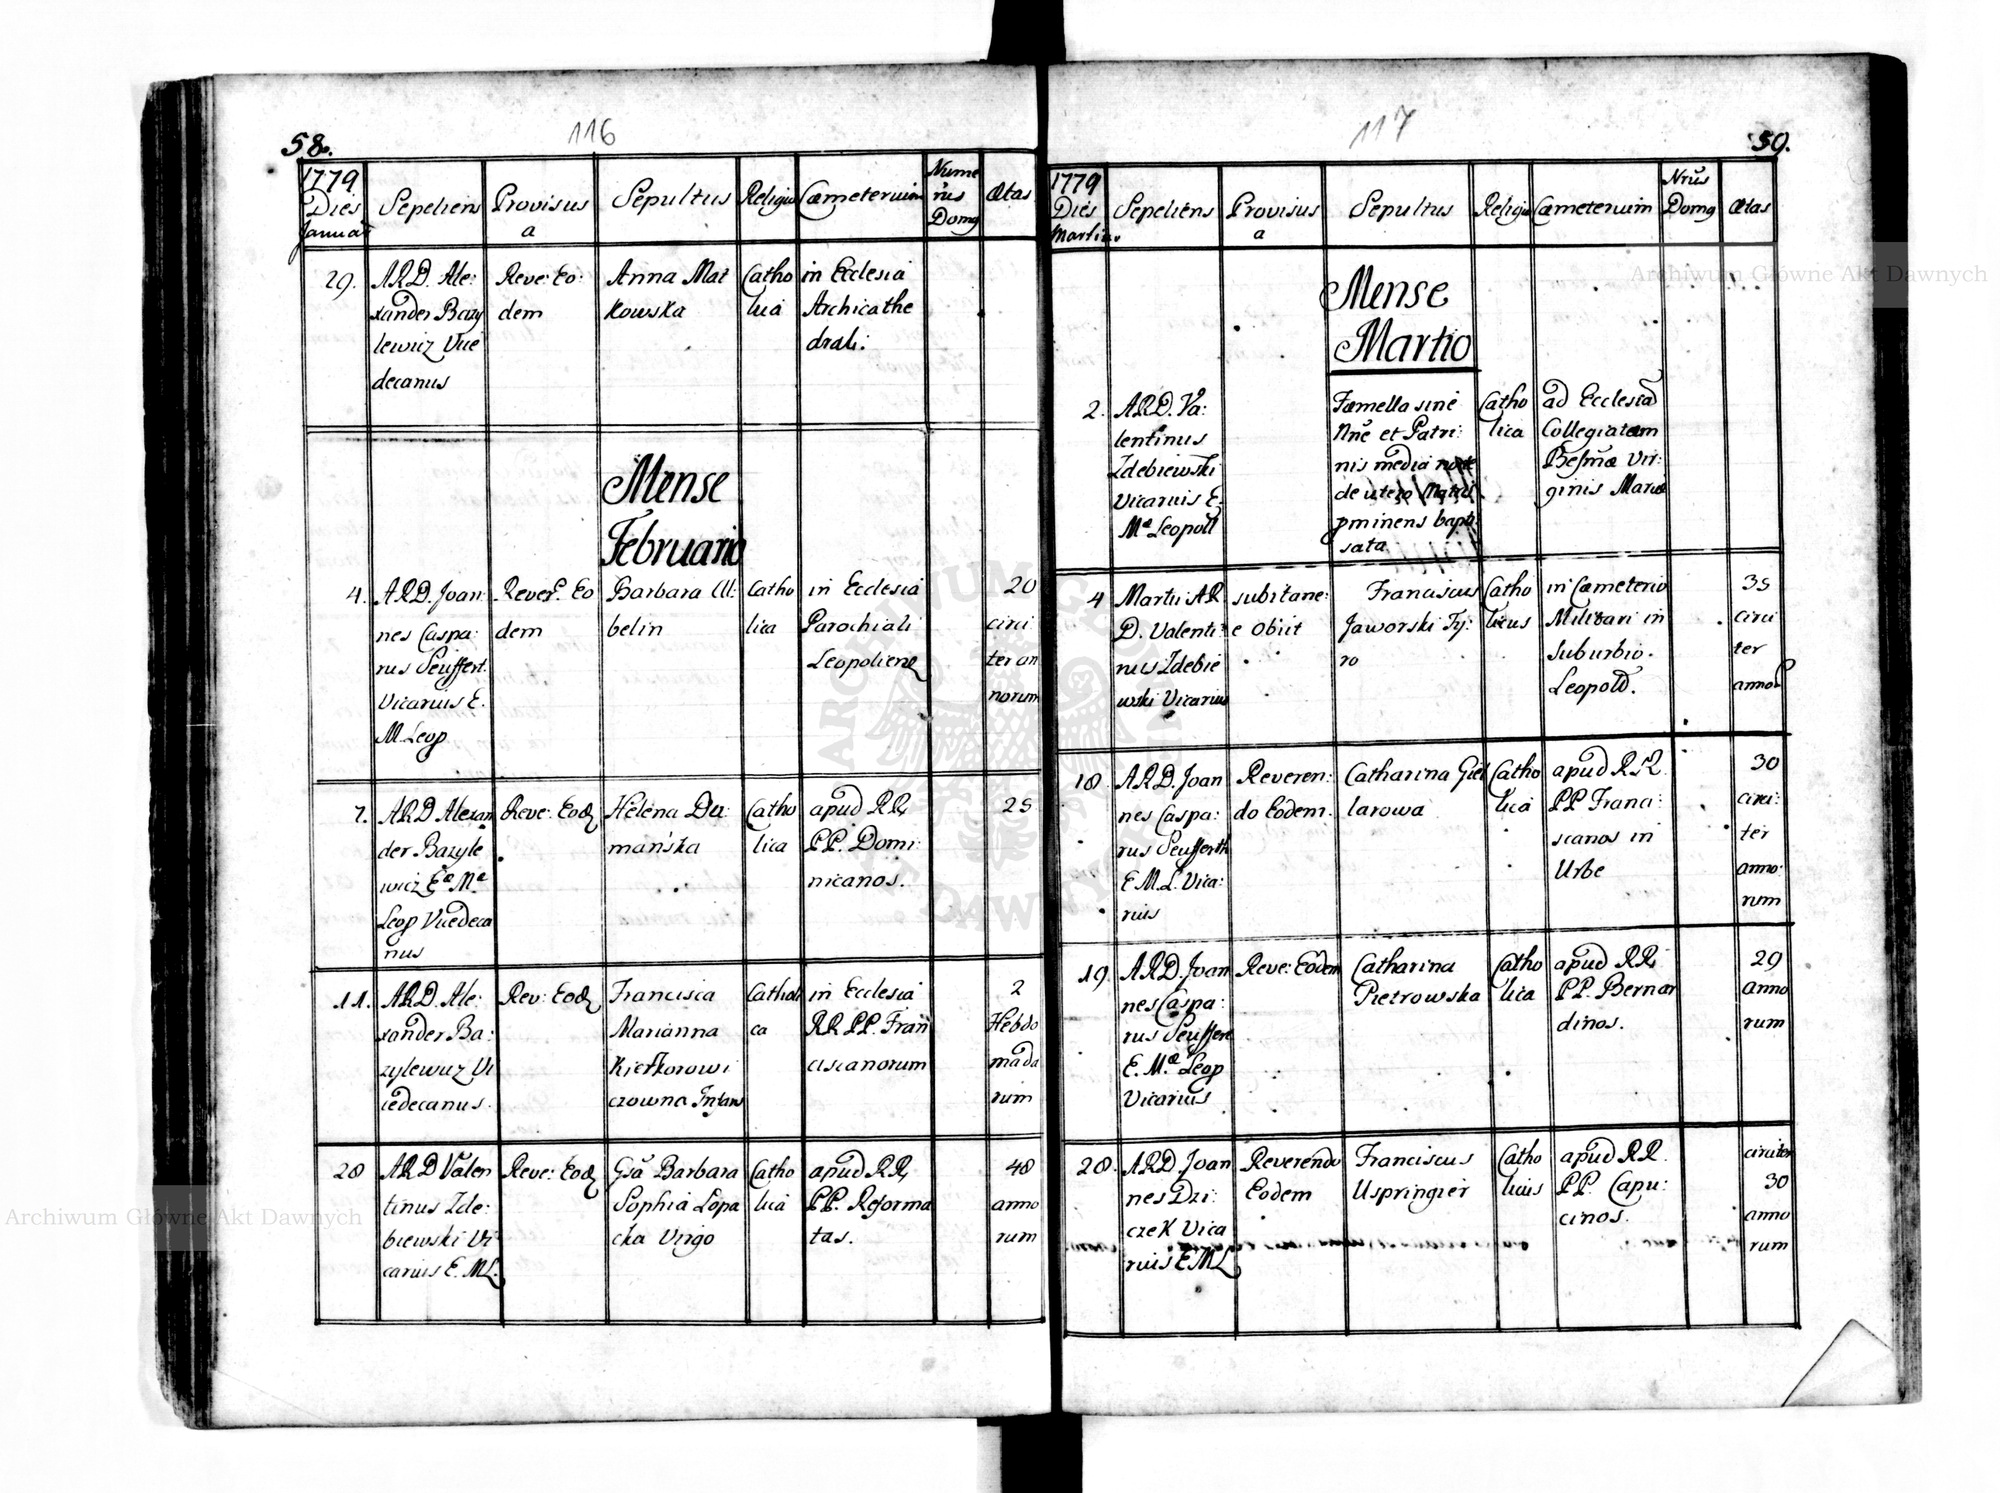 58.
116
1779
Dies
Januar
Sepeliens
Provisus
a
Sepultus
Religio
Cæmeterium
Nume
rus
Domg
Ætas
29.
ARD. Ale:
xander Bazy
lewicz Vice
decanus
Reve: Eo:
dem
Anna Mat
kowska
Catho
lica
in Ecclesia
Archicathe
drali:
Mense
Februario
4.
ARD. Joan:
nes Caspa:
rus Seuffert.
Vicarius E.
M. Leop
Rever. Eo
dem
Barbara Ul:
belin
Catho
lica
in Ecclesia
Parochiali
Leopoliens
20
circi
ter an
norum
7.
ARD Alexan
der Bazyle
wicz E. M.
Leop Vicedeca
nus
Reve: Eod
Helena Du:
mańska
Catho
lica
apud RR
PP. Domi:
nicanos.
25
11.
ARD. Ale:
xander Ba:
zylewicz Vi
cedecanus.
Rev: Eod
Francisca
Marianna
Kierkorowi
czowna Infans
Catholi
ca
in Ecclesia
RR PP. Fran
ciscanorum
2
Hebdo
mada
rum
28
ARD Valen
tinus Zde:
biewski Vi
carius E. ML.
Reve: Eod
Gsa Barbara
Sophia Lopa
cka Virgo
Catho
lica
apud RR
PP. Reforma
tas.
48
anno
rum
59.
117
1779
Dies
Martius
Sepeliens
Provisus
a
Sepultus
Religio
Cæmeterium
Nrus
Domg
Ætas
Mense
Martio
2.
ARD. Va:
lentinus
Zdebiewski
Vicarius E.
M. Leopoli
Fæmella sine
Nne et Patri:
nis media nocte
de utero Matris
pminens bapti
sata
Catho
lica
ad Ecclesiam
Collegiatam
Bessmæ Vir:
ginis Mariæ
4
Martii AR
D. Valenti:
nus Zdebie
wski Vicarius
subitane:
e obiit
Franciscus
Jaworski Ty:
ro
Catho
licus
in Cæmeterio
Militari in
suburbio.
Leopold.
35
circi
ter
annor
18.
ARD. Joan
nes Caspa:
rus Seufferth
E. M. L. Vica:
rius
Reveren:
do Eodem.
Catharina Giel
larowa
Catho
lica
apud RR.
PP Franci:
scanos in
Urbe
30
circi:
ter
anno:
rum
19.
ARD. Joan
nes Caspa:
rus Seuffert
E. M. Leop
Vicarius
Reve: Eodem
Catharina
Pietrowska
Catho
lica
apud RR
PP. Bernar
dinos.
29
anno
rum
28.
ARD. Joan
nes Dzi:
czek Vica
rius EML
Reverendo
Eodem
Franciscus
Uspringier
Catho
licus
apud RR.
PP. Capu:
cinos.
circiter
30
anno
rum
Archiwum Główne Akt Dawnych
Archiwum Główne Akt Dawnych
ARCHIWUM GŁÓWNE AKT DAWNYCH